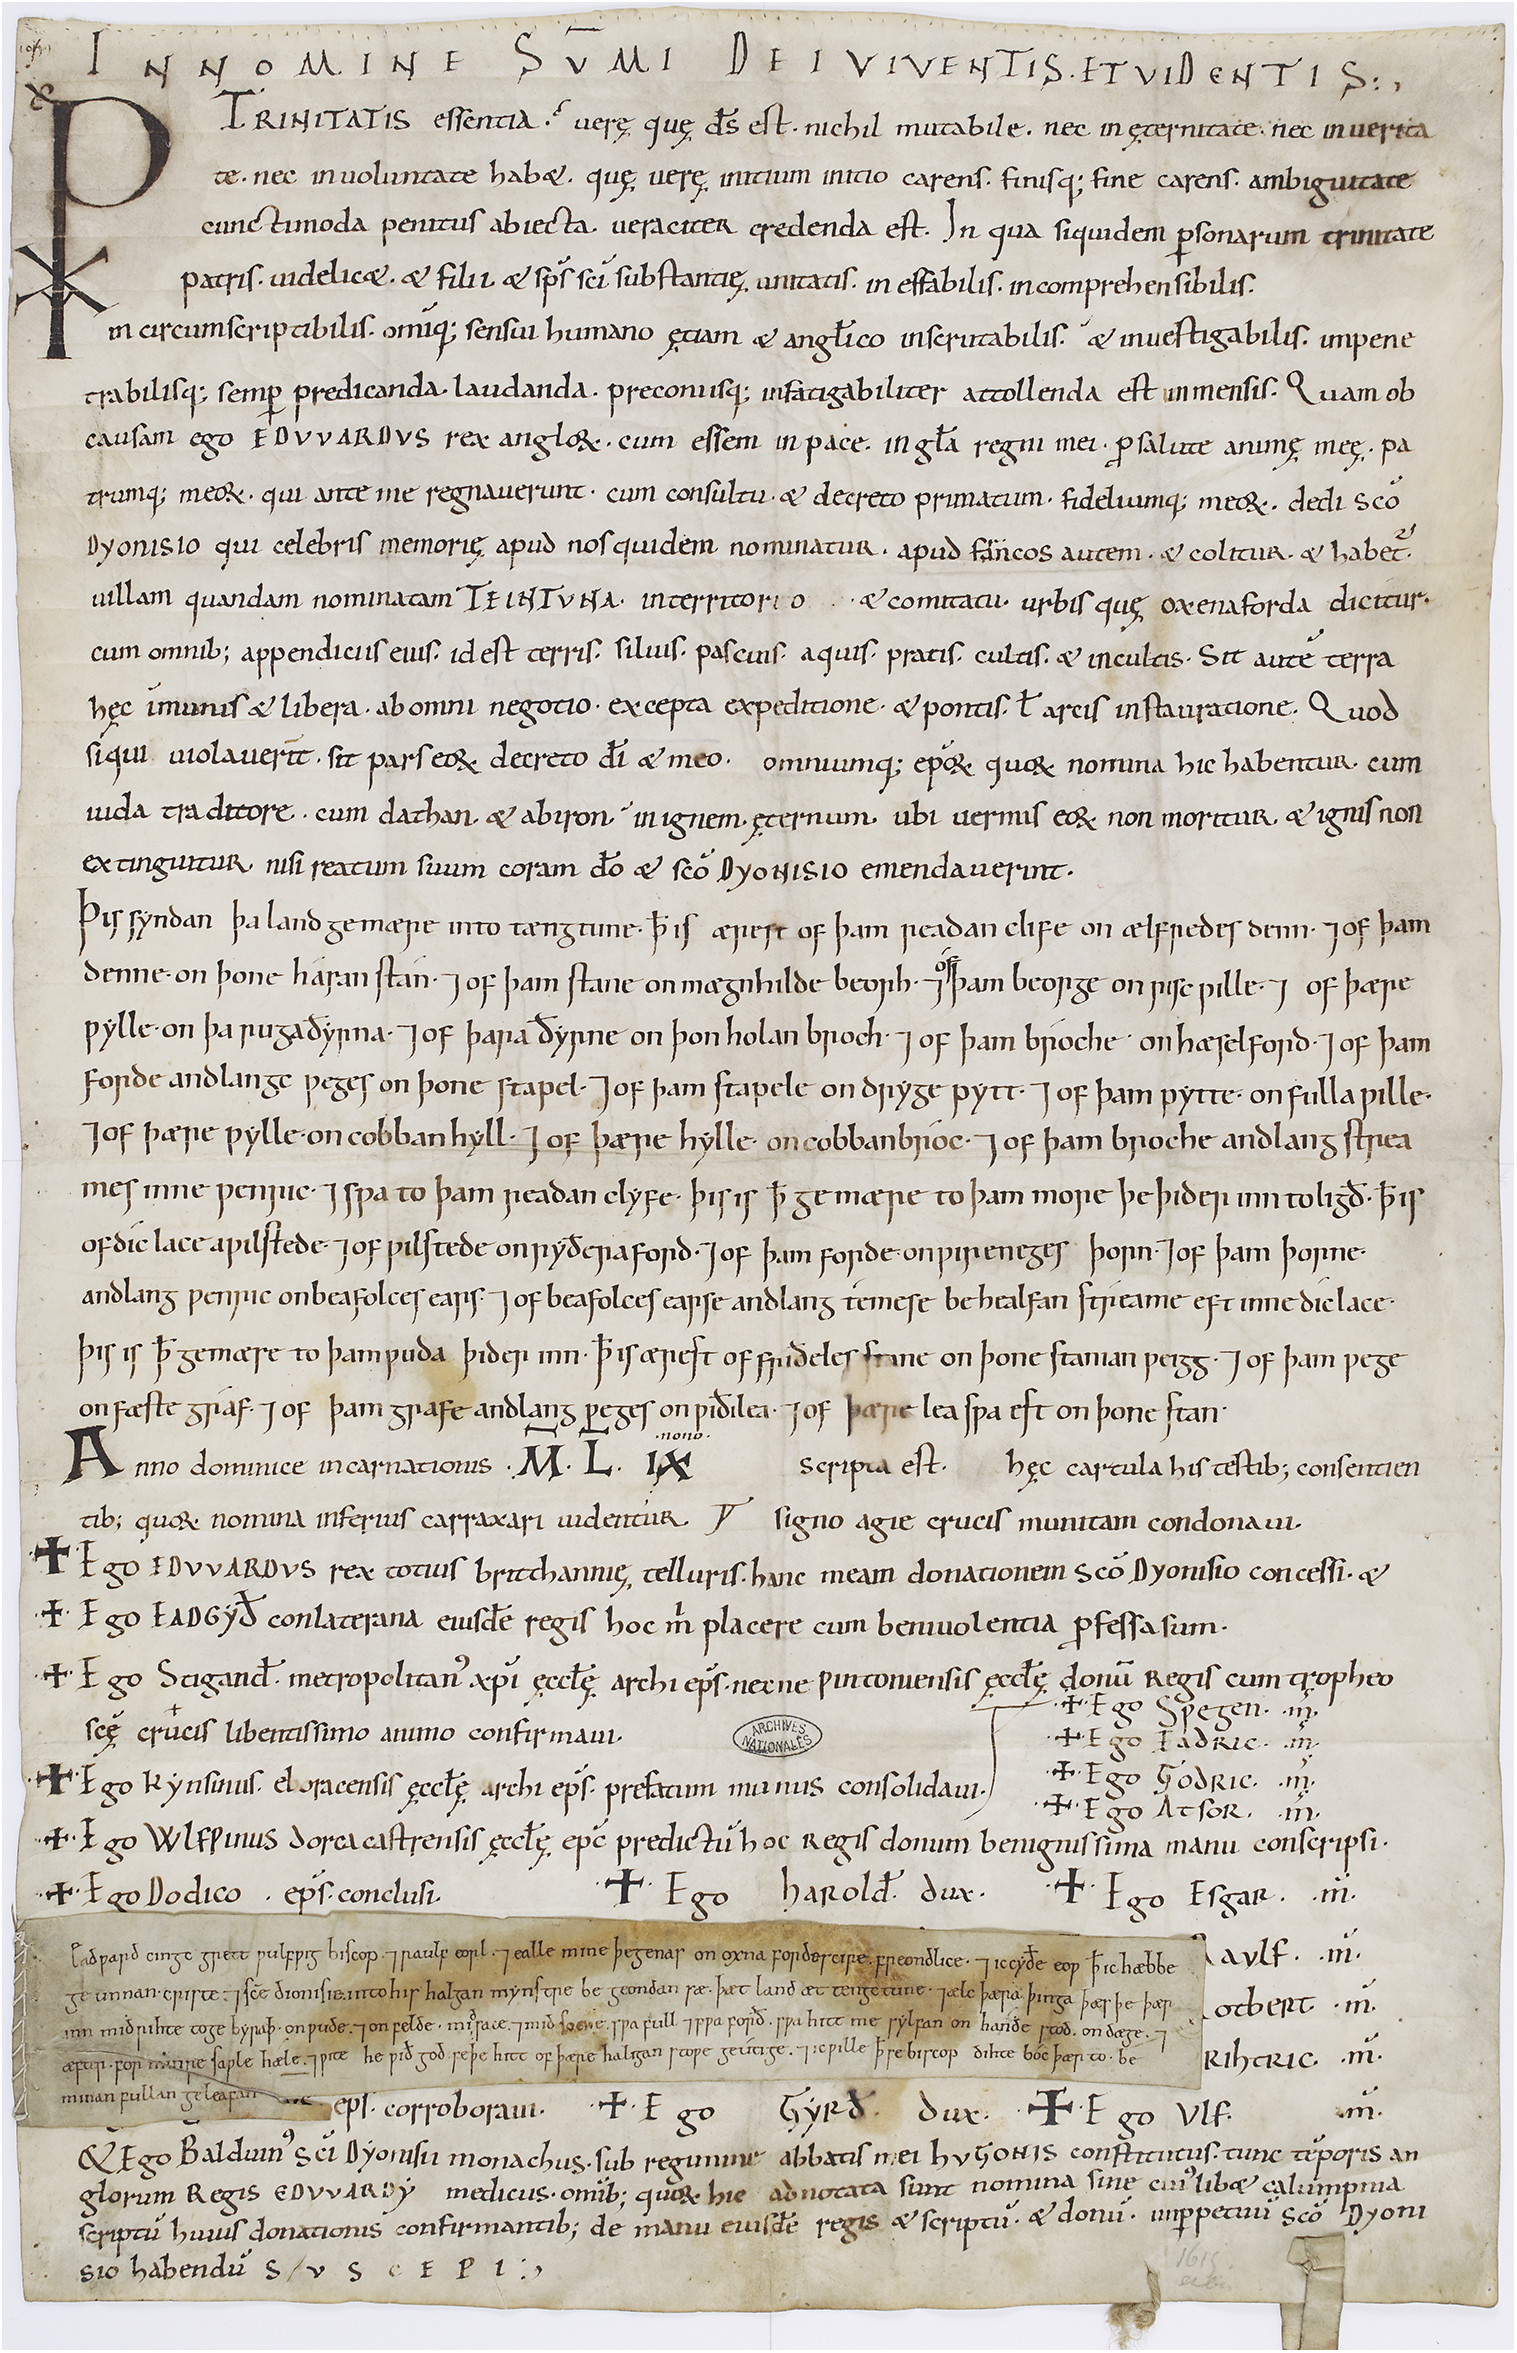 IN NOMINE SūMI DEI VIVENTIS. ET VIDENTIS:,
TRINITATIS essentia. verę quę d̄s est. nichil mutabile. nec in ęternitate. nec in uerita
te. nec in uoluntate habæ. quę uerę initium initio carens. finisq; fine carens. ambiguitate
cunctimoda penitus abiecta. ueraciter credenda est. In qua siquidem ꝑsonarum trinitate
patris. uidelicæ. & filii. & sp̄s sc̄i substantię unitatis. in effabilis. incomprehensibilis.
in circumscriptibilis. omīq; sensui humano ętiam & angl̄ico inscrutabilis. & inuestigabilis. impene
trabilisq; semꝑ predicanda. laudanda. preconiisq; infatigabiliter attollenda est inmensis. Quam ob
causam ego EDVVARDVS rex angloꝝ. cum essem in pace. in gl̄a regni mei. ꝓ salute animę meę. pa
trumq; meoꝝ. qui ante me regnauerunt. cum consultu. & decreto primatum. fideliumq; meoꝝ. dedi sc̄o
DYONISIO qui celebris memorię apud nos quidem nominatur. apud francos autem. & colitur. & habet᷑.
uillam quandam nominatam TEINTVNA. in territorio . & comitatu. urbis quę oxenaforda dicitur.
cum omnib; appendiciis eius. id est terris. siluis. pascuis. aquis. pratis. cultis. & incultis. Sit autē terra
hęc īmunis & libera. ab omni negotio. excepta expeditione. & pontis. ł arcis instauratione. Quod
siqui uiolauerīt. sit pars eoꝝ decreto d̄i & meo. omniumq; ep̄oꝝ quoꝝ nomina hic habentur. cum
iuda traditore. cum dathan. & abiron. in ignem. ęternum. ubi uermis eoꝝ non moritur. & ignis non
extinguitur. nisi reatum suum coram d̄o & sc̄o DYONISIO emendauerint.
Þis syndan þa landgemære into tængtune. ꝥ is ærest of þam readan clife on ælfredes denn. ⁊ of þam
denne. on þone háran stán. ⁊ of þam stane on mægnhilde beorh. ⁊ óf þam beorge on risc ƿille. ⁊ of þære
ƿylle. on þa ruga ðyrna. ⁊ of þara ðyrne on þon holan broch. ⁊ of þam bróche on hæselford. ⁊ of þam
forde andlange ƿeges on þone stapel. ⁊ of þam stapele on dryge pytt. ⁊ of þam pytte. on fulla ƿille.
⁊ of þære ƿylle. on cobban hyll. ⁊ of þære hylle. on cobban bróc. ⁊ of þam broche andlang strea
mes inne ƿenric. ⁊ sƿa to þam readan clyfe. þis is ꝥ gemære to þam more þe þider inn to ligð. ꝥ is
of díc lace a ƿilstede. ⁊ of ƿilstede on ryðera ford. ⁊ of þam forde. on ƿireneges þorn. ⁊ of þam þorne.
andlang ƿenric on beafolces ears. ⁊ of beafolces earse andlang témese be healfan streame eft inne díc lace.
þis is ꝥ gemære to þam ƿuda þider inn. ꝥ is ærest of friðeles stane on þone stanian ƿeigg. ⁊ of þam ƿege
on fæste gráf. ⁊ of þam grafe andlang ƿeges on ƿiðilea. ⁊ of þære lea sƿa eft on þone stan.
.nono.
Anno dominice incarnationis. M̄. L̄. IX scripta est. hęc cartula his testib; consentien
tib; quoꝝ nomina inferius carraxari uidentur. signo agie crucis munitam condonaui.
✝ Ego EDVVARDVS rex totius britthannię telluris. hanc meam donationem sc̄o Dyonisio concessi. &
✝ Ego EADGYÐ conlaterana eiusdē regis hoc m̄ placere cum beniuolentia ꝓfessa sum.
✝ Ego Stigand̄. metropolitan᷒ xp̄i ęccl̄ę archi ep̄s. necne ƿintoniensis ęccl̄ę donū Regis cum tropheo
scę crucis libentissimo animo confirmaui.
✝ Ego Sƿegen. .m̄.
✝ Ego EADRIC. .m̄.
✝ Ego GODRIC. .m̄.
✝ Ego ATSOR. .m̄.
ARCHIVES NATIONALES
✝ Ego Kynsinus. eboracensis ęccl̄ę archi ep̄s. prefatum munus consolidaui.
✝ Ego WLFǷINUS dorcacastrensis ęccl̄ę ep̄c predictū hoc Regis donum benignissima manu conscripsi.
✝ Ego Dodico . ep̄s. conclusi. ✝ Ego harold̄. dux. ✝ Ego Esgar. .m̄.
Eadƿard cingc grett ƿulfƿig biscop. ⁊ raulf eorl. ⁊ ealle mine þegenas on oxnafordescire freondlice. ⁊ ic cyðe eoƿ ꝥ ic hæbbe
geunnan. criste. ⁊ scē dionisie. into his halgan mynstre be geondan sæ. þæt land æt tengctune. ⁊ ælc þæra þinga þæs þe þær
inn mid rihte toge byraþ. on ƿude. ⁊ on felde. mid sace. ⁊ mid socne. sƿa full ⁊ sƿa forð. sƿa hitt me sylfan on handе stod. on dæge. ⁊
æfter. for minre saƿle hæle. ⁊ ƿite he ƿið god seþe hitt of þære haligan stoƿe geútige. ⁊ ic ƿille ꝥ se biscop dihte bóc þær to. be
minan fullan geleafan
AULF. .m̄.
OTBERT. .m̄.
RIHTRIC. .m̄.
ep̄s. corroboraui. ✝ Ego GYRÐ. dux. ✝ Ego Vlf. .m̄.
& Ego Balduin᷒ sc̄i Dyonisii monachus. sub regimine abbatis mei hVGONIS constitutus. tunc tēporis an
glorum Regis EDVVARDY medicus. omīb; quoꝝ hic adnotata sunt nomina sine cui᷒libæ calumpnia
scriptū huius donationis confirmantib; de manu eiusdē regis & scriptū. & donū. inꝑpetuū sc̄o Dyoni
sio habendū SVSCEPI:,